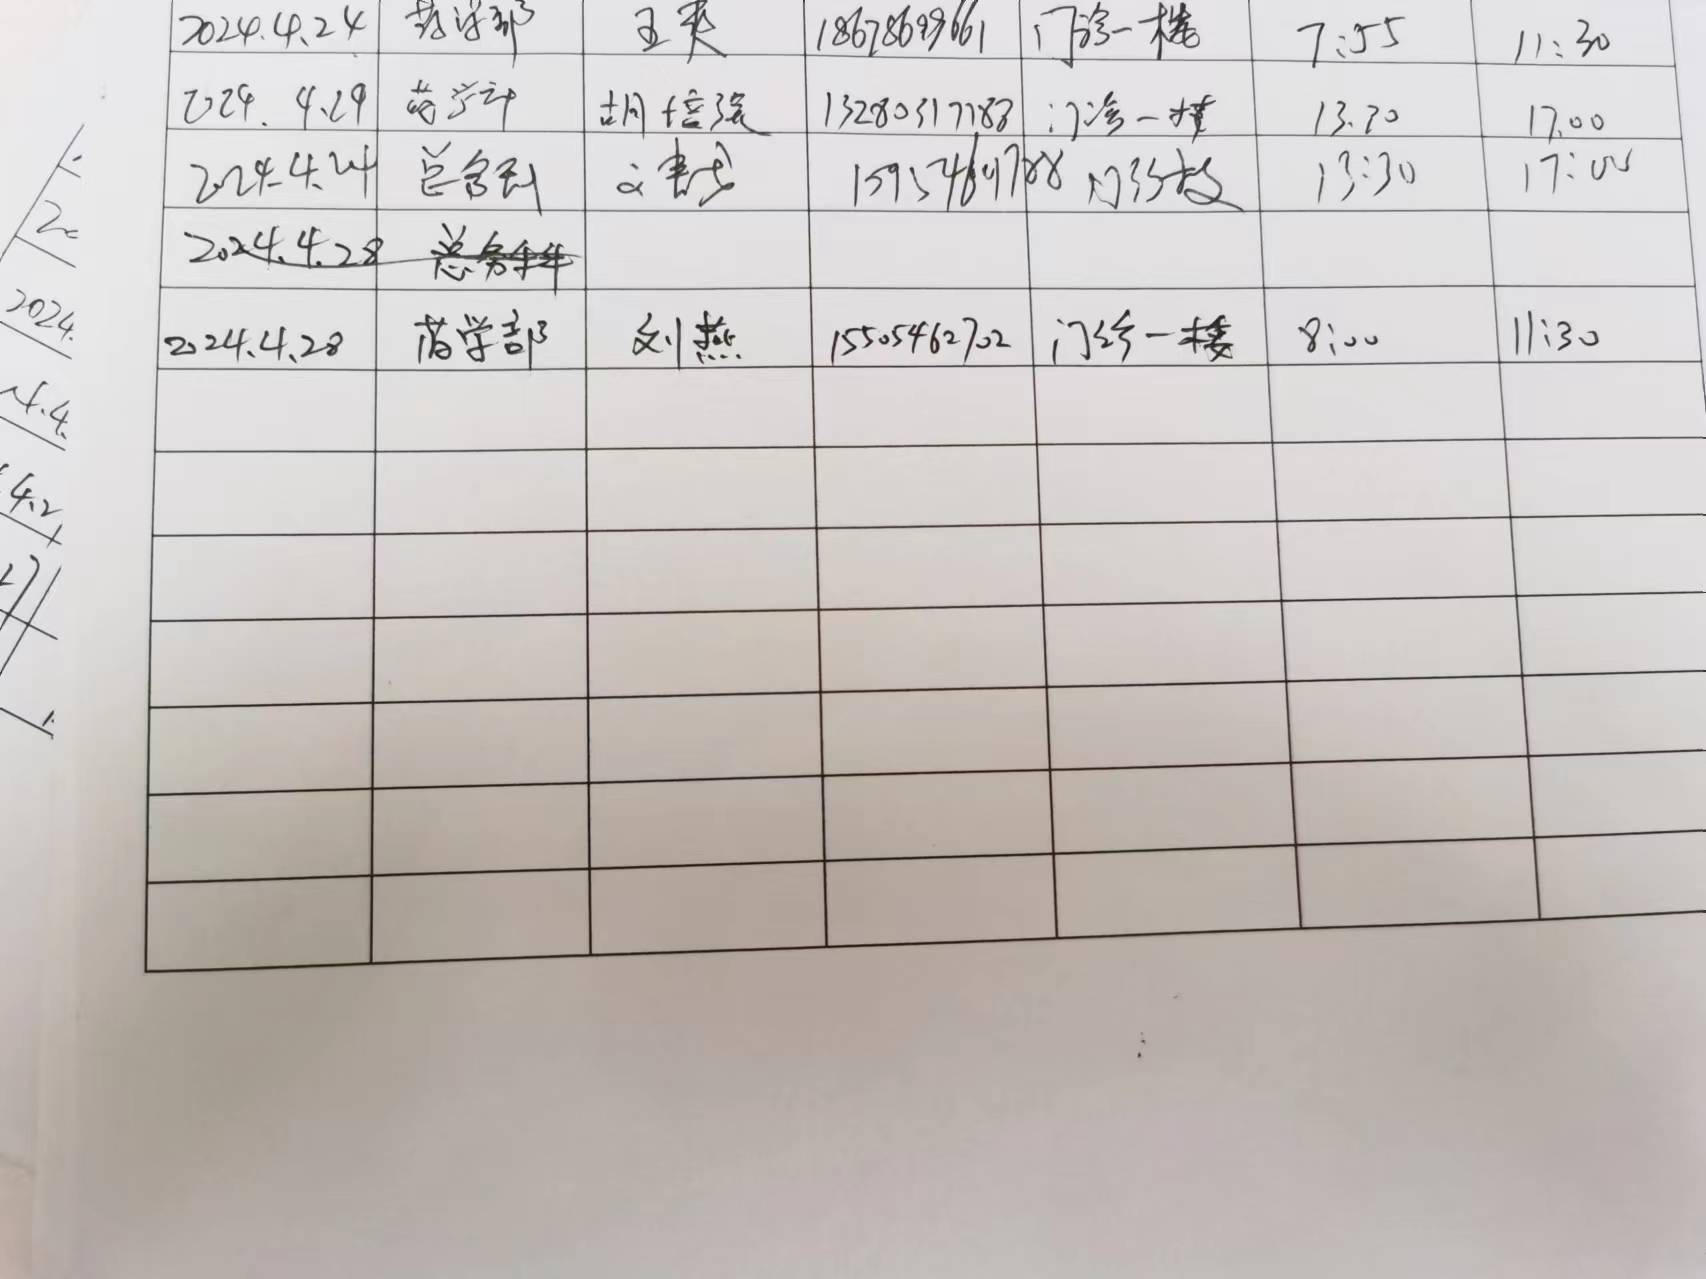 2024.4.24 药学部 王英 18678699661 门诊一楼 7:55 11:30
2024.4.29 药学部 胡培强 13280317188 门诊一楼 13:30 17:00
2024.4.24 总务科 门诊楼 13:30 17:00
2024.4.28 总务科
2024.4.28 药学部 刘燕 15505462702 门诊一楼 8:00 11:30